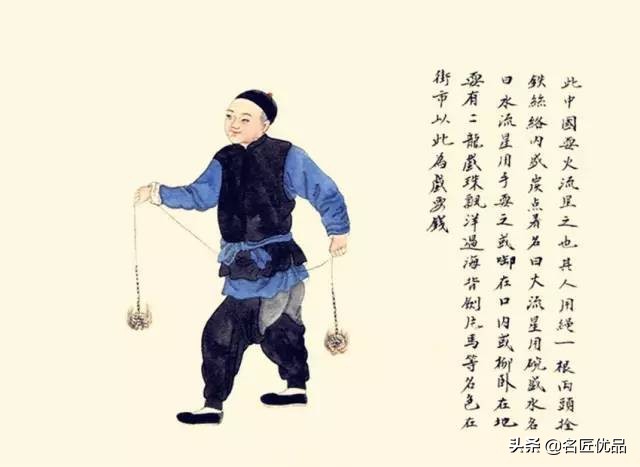 此中國耍火流星之也其人用繩一根兩頭拴
鉄絲絡內盛炭点着名曰火流星用碗盛水名
曰水流星用手耍之或啣在口內或仰卧在地
耍有二龍戲珠觀洋過海背劍片馬等名色在
街市以此為戲要錢
头条 @名匠优品